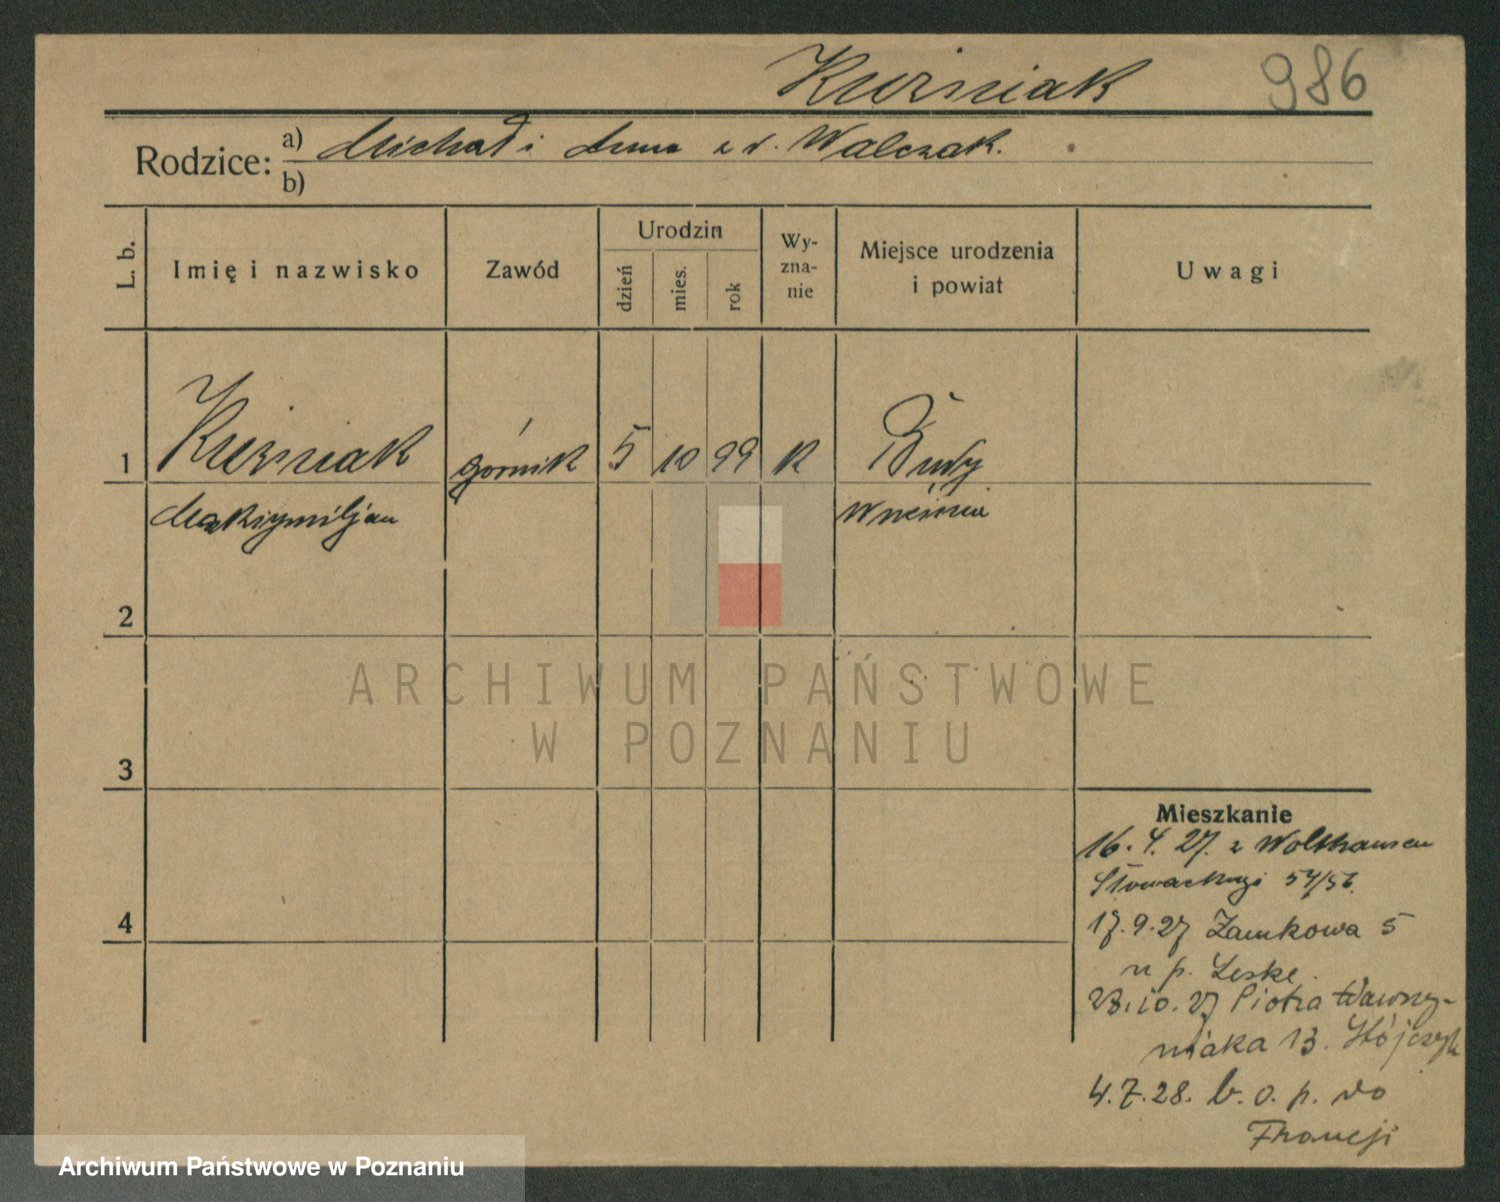 Kuźniak 986
Rodzice: a) Michał i Anna z d. Walczak.
b)
L. b. Imię i nazwisko Zawód Urodzin dzień mies. rok Wy-zna-nie Miejsce urodzenia i powiat Uwagi
1 Kuźniak górnik 5 10 99 K Budy
Maksymiljan Września
2
ARCHIWUM PAŃSTWOWE
W POZNANIU
3
Mieszkanie
16.4.27. z Wolthausen
Słowackiego 54/56.
4
17.9.27 Zamkowa 5
u p. Leske.
28.10.27 Piotra Wawrzy-
niaka 13. Wójczyk
4.7.28. b. o. p. do
Francji
Archiwum Państwowe w Poznaniu